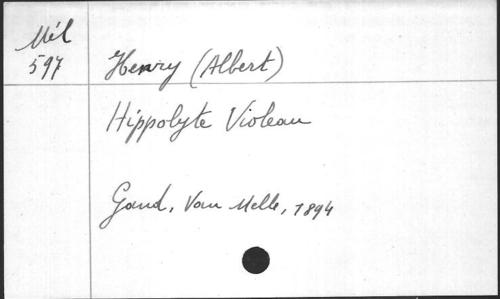 Mél
597
Henry (Albert)
Hippolyte Violeau
Gand, Van Melle, 1894